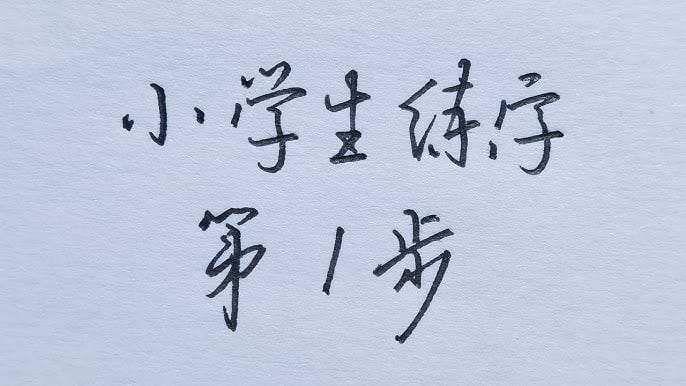 小学生练字
第1步